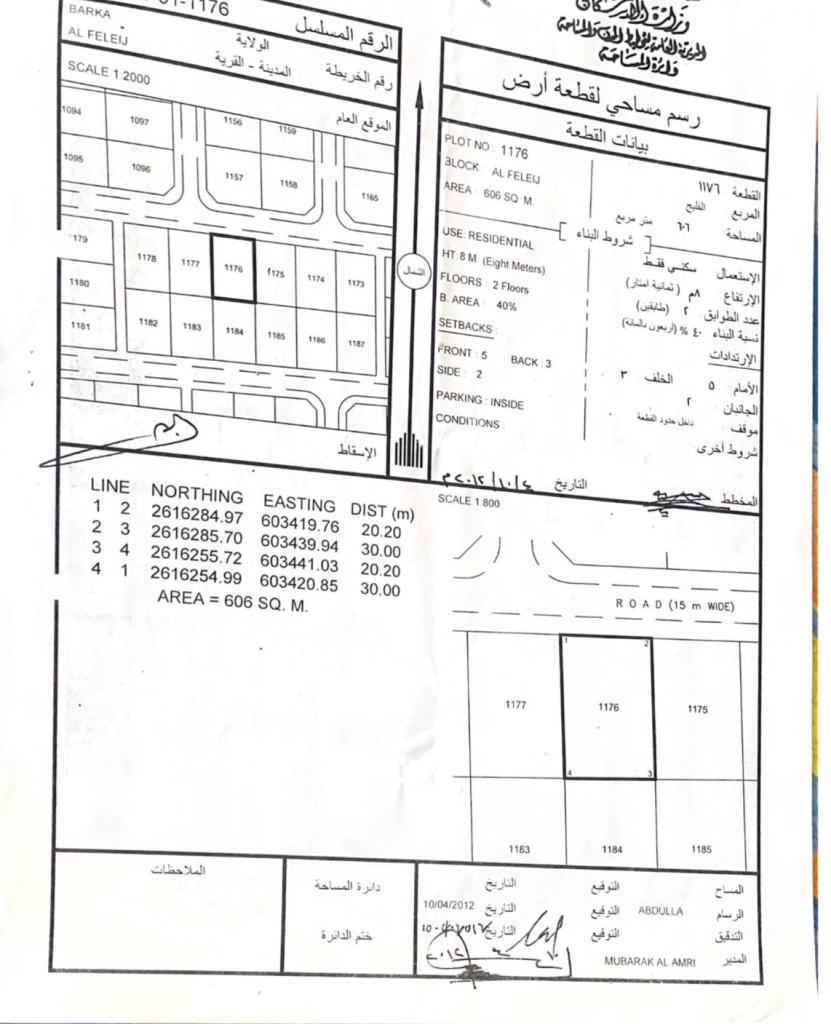 وزارة الإسكان
دائرة المساحة
رسم مساحي لقطعة أرض
بيانات القطعة
PLOT NO : 1176
القطعة ١١٧٦
BLOCK : AL FELEIJ
المربع الفليج
AREA : 606 SQ. M.
المساحة ٦٠٦ متر مربع
[ شروط البناء ]
USE: RESIDENTIAL
الإستعمال سكني فقط
HT: 8 M (Eight Meters)
الإرتفاع ٨م (ثمانية أمتار)
FLOORS : 2 Floors
عدد الطوابق ٢ (طابقين)
B. AREA : 40%
نسبة البناء ٤٠ % (أربعون بالمائة)
SETBACKS :
الإرتدادات
FRONT : 5 BACK : 3
الأمام ٥ الخلف ٣
SIDE : 2
الجانبان ٢
PARKING : INSIDE
موقف داخل حدود القطعة
CONDITIONS :
شروط أخرى
المخطط
التاريخ ٢٠١٢/١٠/٤م
1176
الرقم المسلسل
BARKA
الولاية
AL FELEIJ
رقم الخريطة : المدينة - القرية
SCALE 1:2000
الموقع العام
1094 1097 1156 1159
1095 1096 1157 1158 1165
1179 1178 1177 1176 1175 1174 1173
1180
1181 1182 1183 1184 1185 1186 1187
الشمال
الإسقاط
LINE NORTHING EASTING DIST (m)
1 2 2616284.97 603419.76 20.20
2 3 2616285.70 603439.94 30.00
3 4 2616255.72 603441.03 20.20
4 1 2616254.99 603420.85 30.00
AREA = 606 SQ. M.
SCALE 1:800
ROAD (15 m WIDE)
1 2
1177 1176 1175
4 3
1183 1184 1185
الملاحظات
دائرة المساحة
ختم الدائرة
المساح التوقيع التاريخ
الرسام ABDULLA التوقيع التاريخ 10/04/2012
التدقيق التوقيع التاريخ
المدير MUBARAK AL AMRI